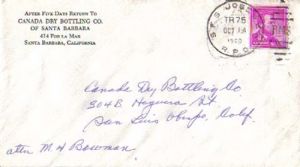 AFTER FIVE DAYS RETURN TO
CANADA DRY BOTTLING CO.
OF SANTA BARBARA
414 POR LA MAR
SANTA BARBARA, CALIFORNIA
TR76
OCT
R.P.O.
Canada Dry Bottling Co.
304B Higuera St.
San Luis Obispo, Calif.
attn M H Bowman